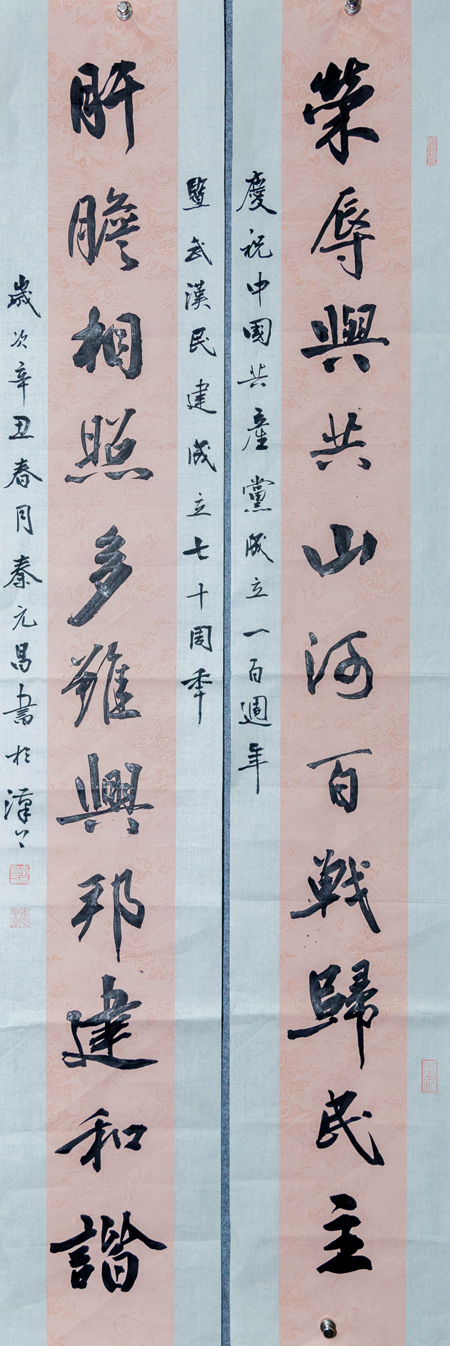 榮辱與共山河百戦歸民主
慶祝中國共產黨成立一百週年
暨武漢民建成立七十周年
肝膽相照多難興邦建和諧
歲次辛丑春月秦元昌書於漢上